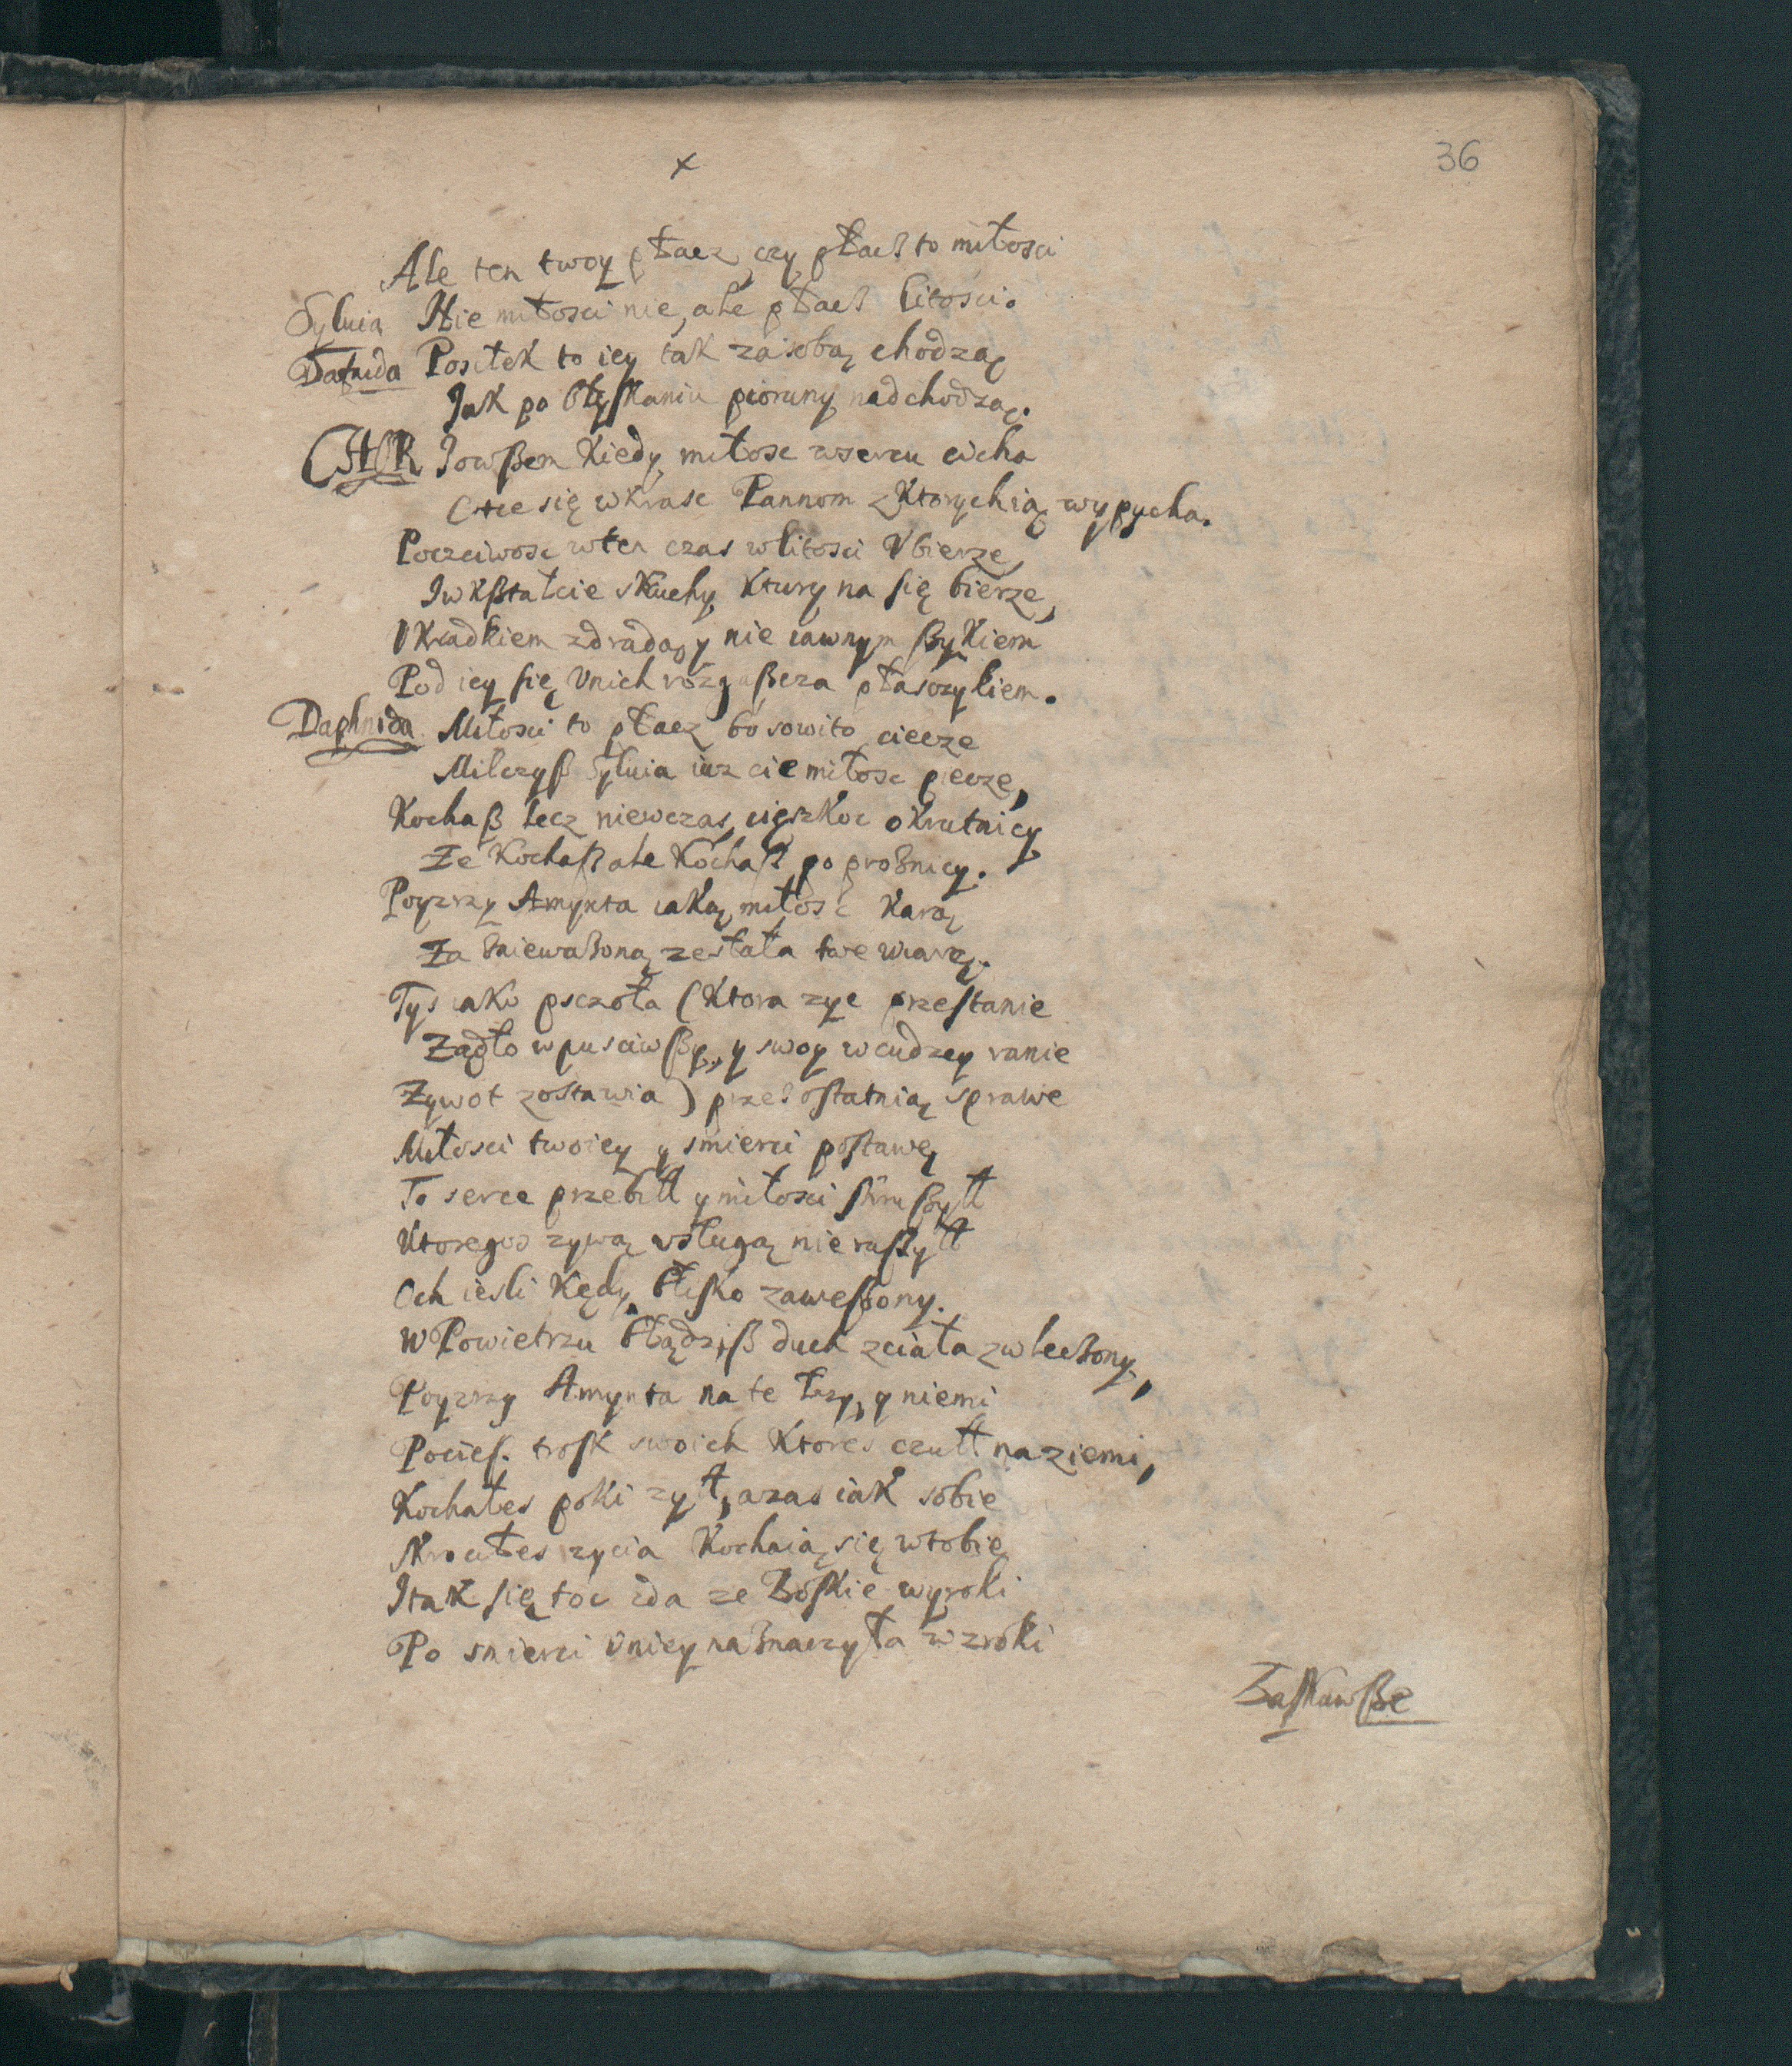 x
36
Ale ten twoy płacz, czy płacß to miłosci
Syluia Nie miłosci nie, ale płacß litości.
Dafnida Posiłek to iey tak zasobą chodzą
Jak po błyskaniu pioruny nadchodzą.
CHOR Jowßem kiedy miłosc wsercu cicha
Chce się wkrasc Pannom zktorychią wypycha.
Poczciwosc wten czas wlitosci Vbierze
Jwkßtałcie skuchy ktury na się bierze,
Vkradkiem zdradą y nie iawnym ßykiem
Pod iey się Vnich rozgaßcza płasczykiem.
Daphnida Miłosci to płacz bo sowito ciecze
Milczyß Sylvia iuz cie miłosc piecze,
Kochaß lecz niewczas, cięszkoc okrutnicy
Ze kochaß ale kochaß po proßnicy.
Poyzrzy Amynta iaką miłość karą
Za ßniewaßoną zesłała twe wiarą.
Tys iako psczoła (ktora zyc przestanie
Ządło wpusciwßy, y swoy wcudzey ranie
Zywot zostawia) przeß ostatnią sprawe
Miłosci twoiey y smierci postawę
To serce przebiłł y miłosci skrußyłł
Ktoregos zywą vsługą nie rußyłł
Och iesli kędy blisko zawießony.
WPowietrzu błądziß duch zciała zwleczony,
Poyzrzy Amynta na te łzy, y niemi
Pocieß. trosk swoich ktores czułł naziemi,
Kochałes poki zył, azas iak sobie
Skrociłes zycia kochaią się wtobie
Jtak się toc zda ze Boskie wyroki
Po smierci Vniey naßnaczyła wzroki
Łaskawße